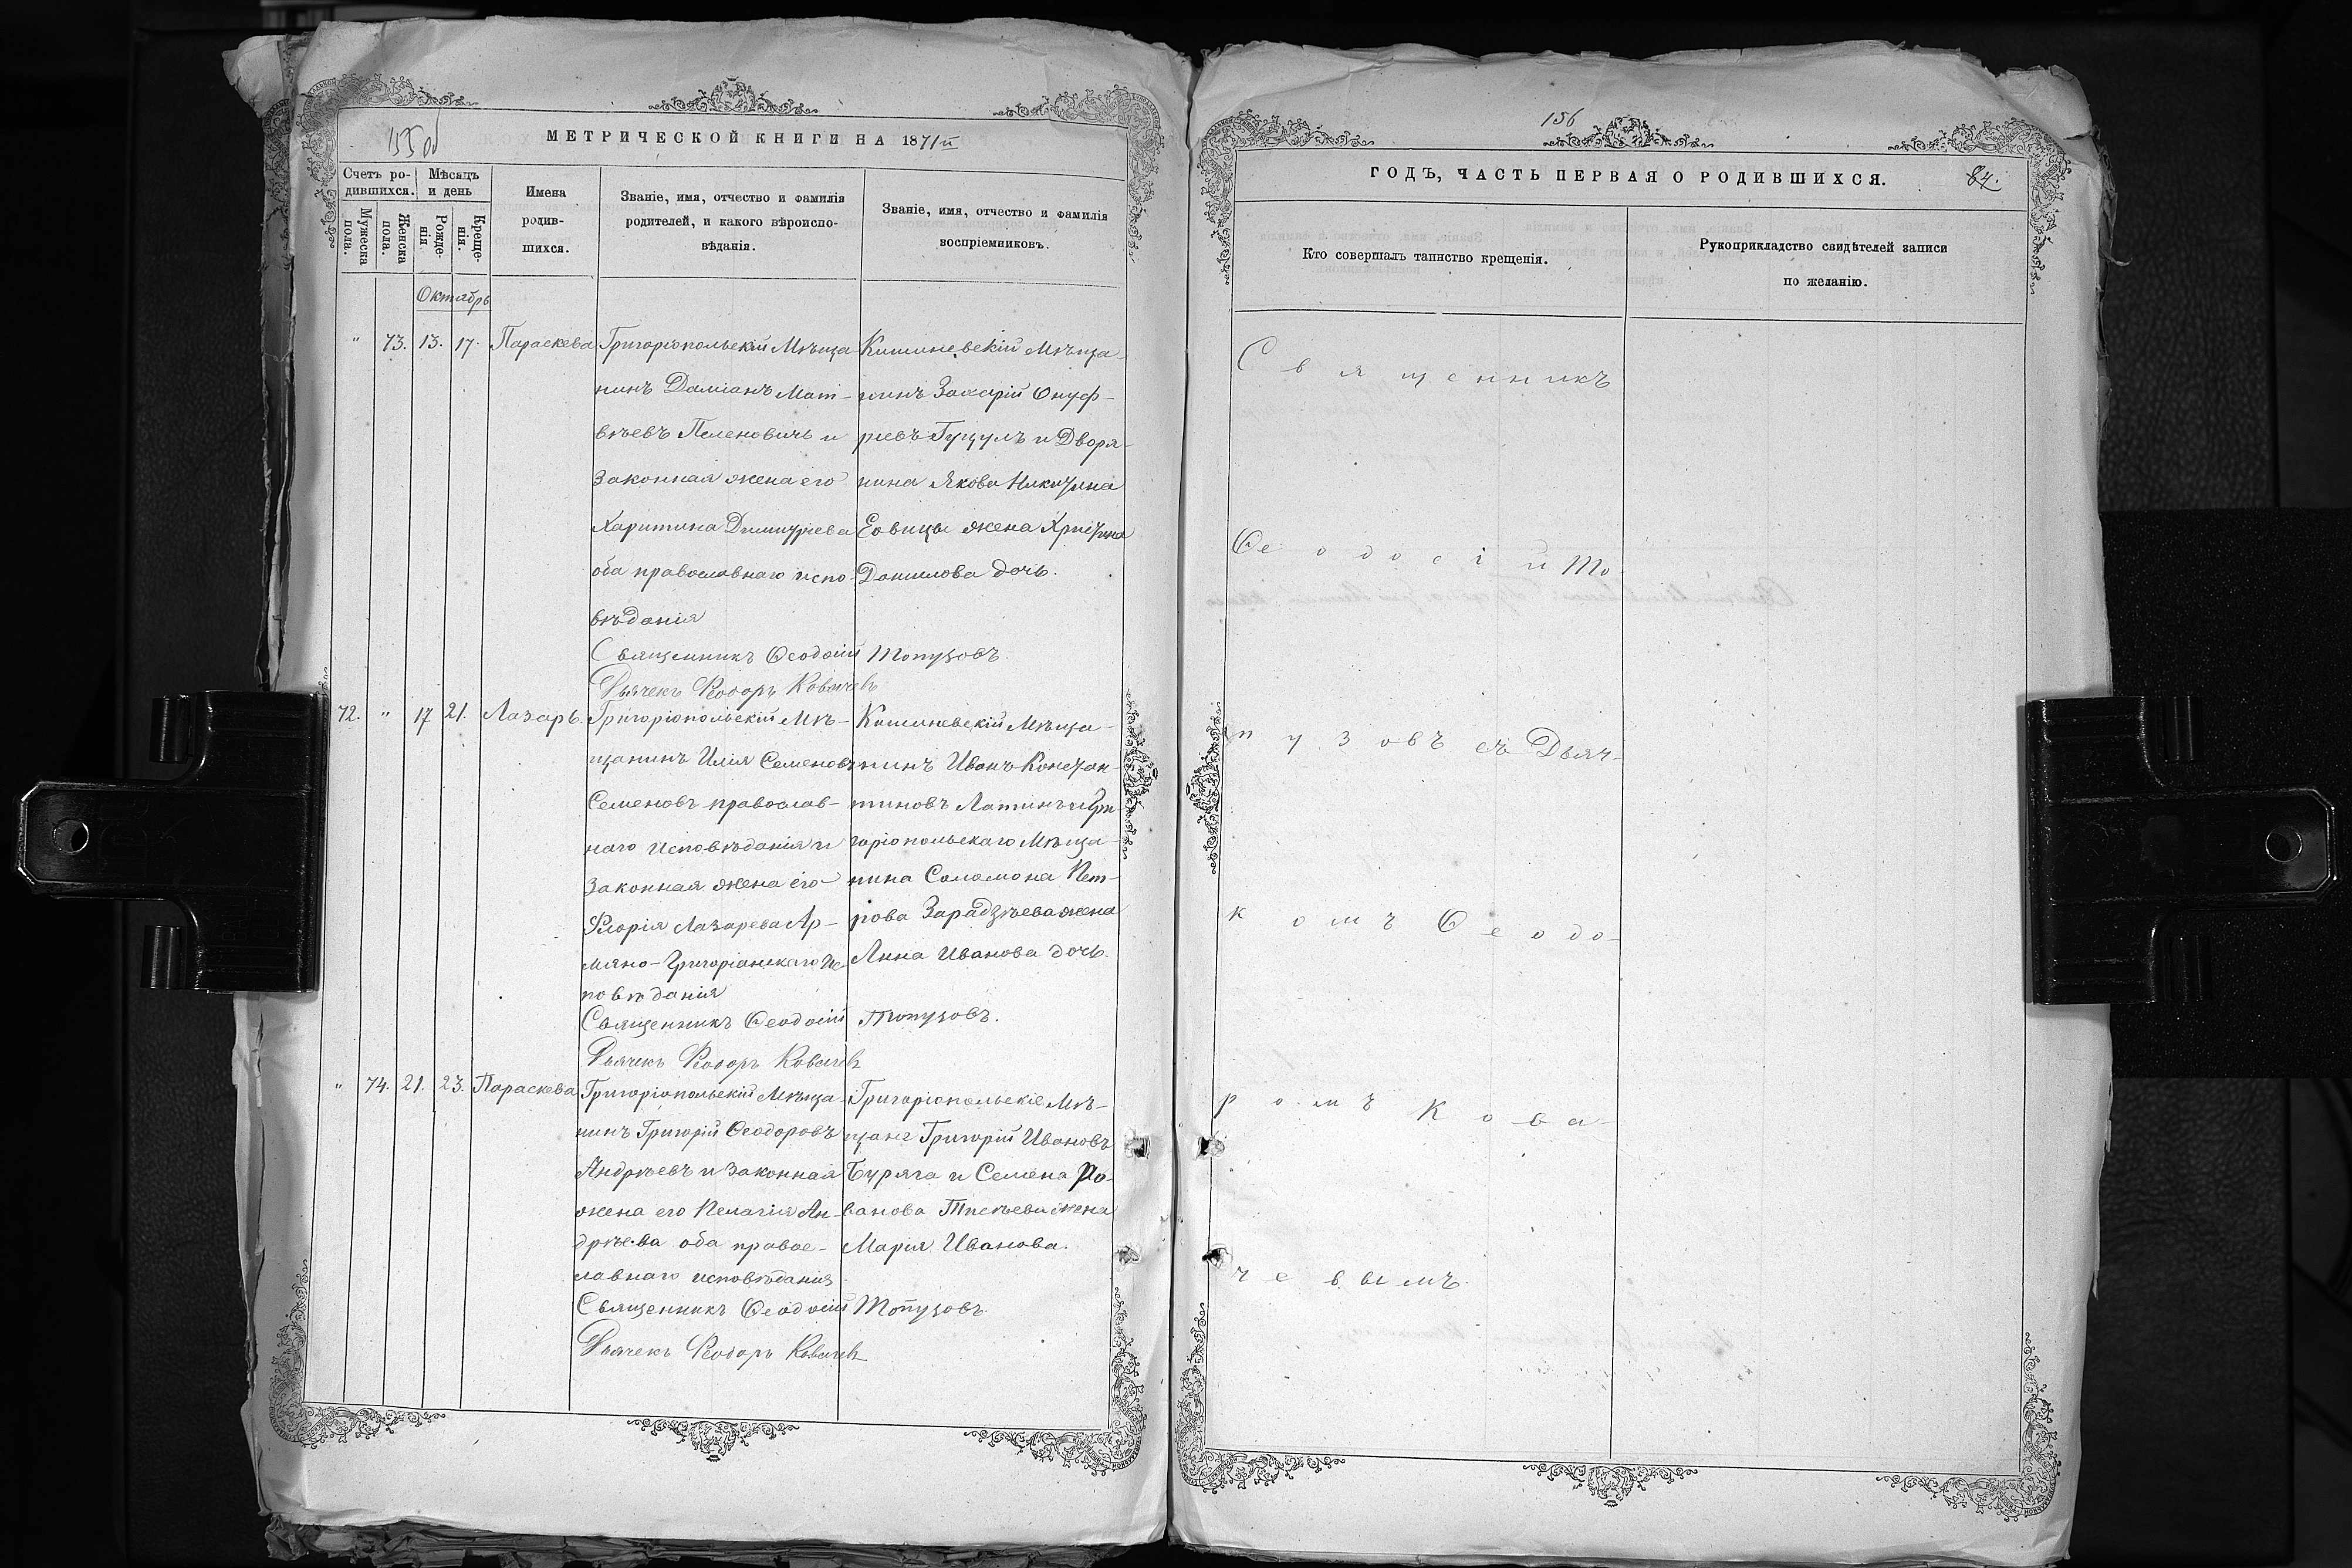 155 об
МЕТРИЧЕСКОЙ КНИГИ НА 1871й
Счетъ ро-
дившихся.
Мѣсяцъ
и день
Мужеска
пола.
Женска
пола.
Рожде-
нія
Креще-
нія.
Имена
родив-
шихся.
Званіе, имя, отчество и фамилія
родителей, и какого вѣроиспо-
вѣданія.
Званіе, имя, отчество и фамилія
воспріемниковъ.
Октябрь
" 73. 13. 17. Параскева
Григоріопольскій Мѣща-
нинъ Даміанъ Мат-
вѣевъ Пеленовичь и
законная жена его
Харитина Димитріева
оба православнаго испо-
вѣданія
Кишиневскій Мѣща-
нинъ Захарій Онуф-
ріевъ Гуцулъ и Дворя-
нина Якова Никитина
жена Христина
Данилова дочь.
Священникъ Ѳеодосій Топузовъ.
Дьячекъ Ѳеодоръ Ковачевъ
72. " 17 21. Лазарь.
Григоріопольскій Мѣ-
щанинъ Илія Семеновъ
Семеновъ православ-
наго исповѣданія и
законная жена его
Флорія Лазарева Ар-
мяно-Григоріанскаго Ис-
повѣданія
Кишиневскій Мѣща-
нинъ Иванъ Констан-
тиновъ Латинъ и Гри
горіопольскаго Мѣща-
нина Соломона Пет-
рова Зарадзѣева жена
Анна Иванова дочь.
Священникъ Ѳеодосій Топузовъ.
Дьячекъ Ѳеодоръ Ковачевъ
" 74. 21. 23. Параскева
Григоріопольскій Мѣща-
нинъ Григорій Ѳеодоровъ
Андрѣевъ и законная
жена его Пелагія Ан-
дрѣева оба правос-
лавнаго исповѣданія
Григоріопольскіе Мѣ-
щане Григорій Ивановъ
Буряга и Семена Ро-
ванова жена
Марія Иванова.
Священникъ Ѳеодосій Топузовъ.
Дьячекъ Ѳеодоръ Ковачевъ
156
ГОДЪ, ЧАСТЬ ПЕРВАЯ О РОДИВШИХСЯ.
84.
Кто совершалъ таинство крещенія.
Рукоприкладство свидѣтелей записи
по желанію.
Священникъ
Ѳеодосій То-
пузовъ съ Дьяч-
комъ Ѳеодо-
ромъ Кова-
чевымъ